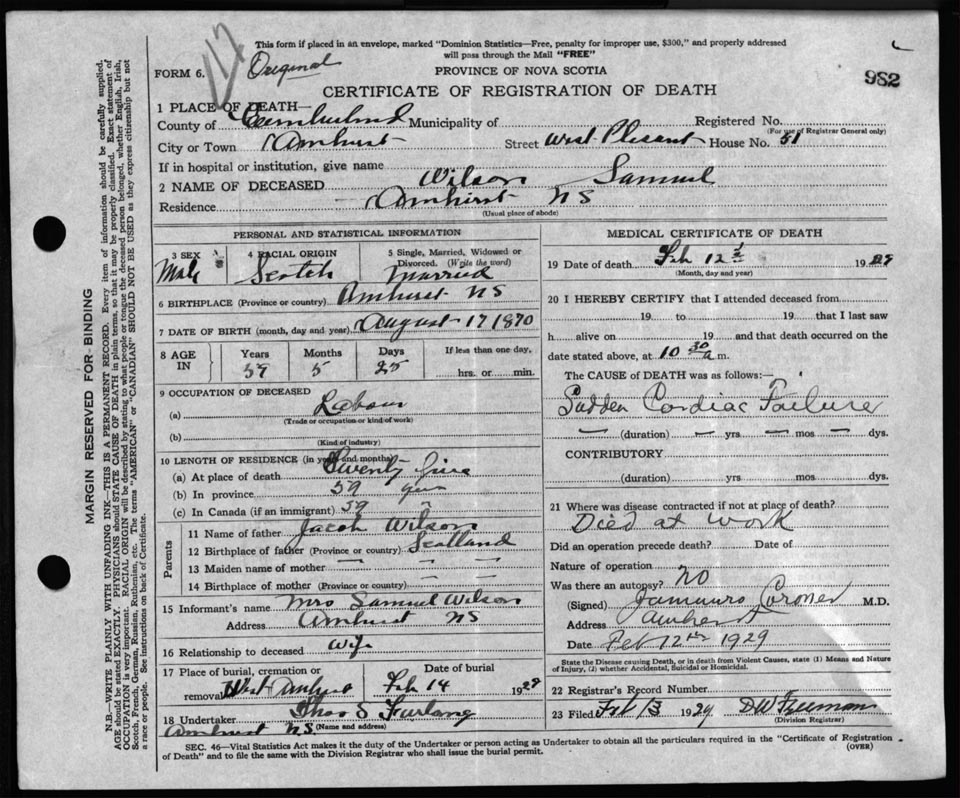 This form if placed in an envelope, marked "Dominion Statistics—Free, penalty for improper use, $300," and properly addressed
will pass through the Mail "FREE"
FORM 6. Original
PROVINCE OF NOVA SCOTIA
982
CERTIFICATE OF REGISTRATION OF DEATH
1 PLACE OF DEATH—
County of Cumberland Municipality of Registered No.
(For use of Registrar General only)
City or Town Amhurst Street West Plesant House No. 51
If in hospital or institution, give name
2 NAME OF DECEASED Wilson Samuel
Residence Amhurst NS
(Usual place of abode)
PERSONAL AND STATISTICAL INFORMATION
3 SEX Male
4 RACIAL ORIGIN Scotch
5 Single, Married, Widowed or Divorced. (Write the word) Married
6 BIRTHPLACE (Province or country) Amhurst NS
7 DATE OF BIRTH (month, day and year) August 17 1870
8 AGE IN Years Months Days If less than one day.
59 5 25 hrs. or min.
9 OCCUPATION OF DECEASED
(a) Labour
(Trade or occupation or kind of work)
(b)
(Kind of industry)
10 LENGTH OF RESIDENCE (in years and months)
(a) At place of death Twenty five
(b) In province 59 yrs
(c) In Canada (if an immigrant) 59 "
Parents
11 Name of father Jacob Wilson
12 Birthplace of father (Province or country) Scotland
13 Maiden name of mother — —
14 Birthplace of mother (Province or country) — —
15 Informant's name Mrs Samuel Wilson
Address Amhurst NS
16 Relationship to deceased Wife
17 Place of burial, cremation or removal West Amhurst
Date of burial Feb 14 1929
18 Undertaker Thos S Furlong
(Name and address)
Amhurst NS
MEDICAL CERTIFICATE OF DEATH
19 Date of death Feb 12 1929
(Month, day and year)
20 I HEREBY CERTIFY that I attended deceased from
19 to 19 that I last saw
h alive on 19 and that death occurred on the
date stated above, at 10 30 a.m.
The CAUSE of DEATH was as follows:—
Sudden Cardiac Failure
— (duration) — yrs — mos — dys.
CONTRIBUTORY
(duration) yrs mos dys.
21 Where was disease contracted if not at place of death?
Died at work
Did an operation precede death? Date of
Nature of operation
Was there an autopsy? no
(Signed) Coroner M.D.
Address Amherst
Date Feb 12th 1929
State the Disease causing Death, or in death from Violent Causes, state (1) Means and Nature of Injury, (2) whether Accidental, Suicidal or Homicidal.
22 Registrar's Record Number
23 Filed Feb 13 1929 DW Freeman
(Division Registrar)
SEC. 46—Vital Statistics Act makes it the duty of the Undertaker or person acting as Undertaker to obtain all the particulars required in the "Certificate of Registration
of Death" and to file the same with the Division Registrar who shall issue the burial permit.
(OVER)
MARGIN RESERVED FOR BINDING
N.B.—WRITE PLAINLY WITH UNFADING INK—THIS IS A PERMANENT RECORD. Every item of information should be carefully supplied.
AGE should be stated EXACTLY. PHYSICIANS should STATE CAUSE OF DEATH in plain terms, so that it may be properly classified. Exact statement of
OCCUPATION is very important. RACIAL ORIGIN will be described by stating to what people or tongue the deceased person belonged, whether English, Irish,
Scotch, French, German, Russian, Ruthenian, etc. The terms "AMERICAN" or "CANADIAN" SHOULD NOT BE USED as they express citizenship but not
a race or people. See instructions on back of Certificate.